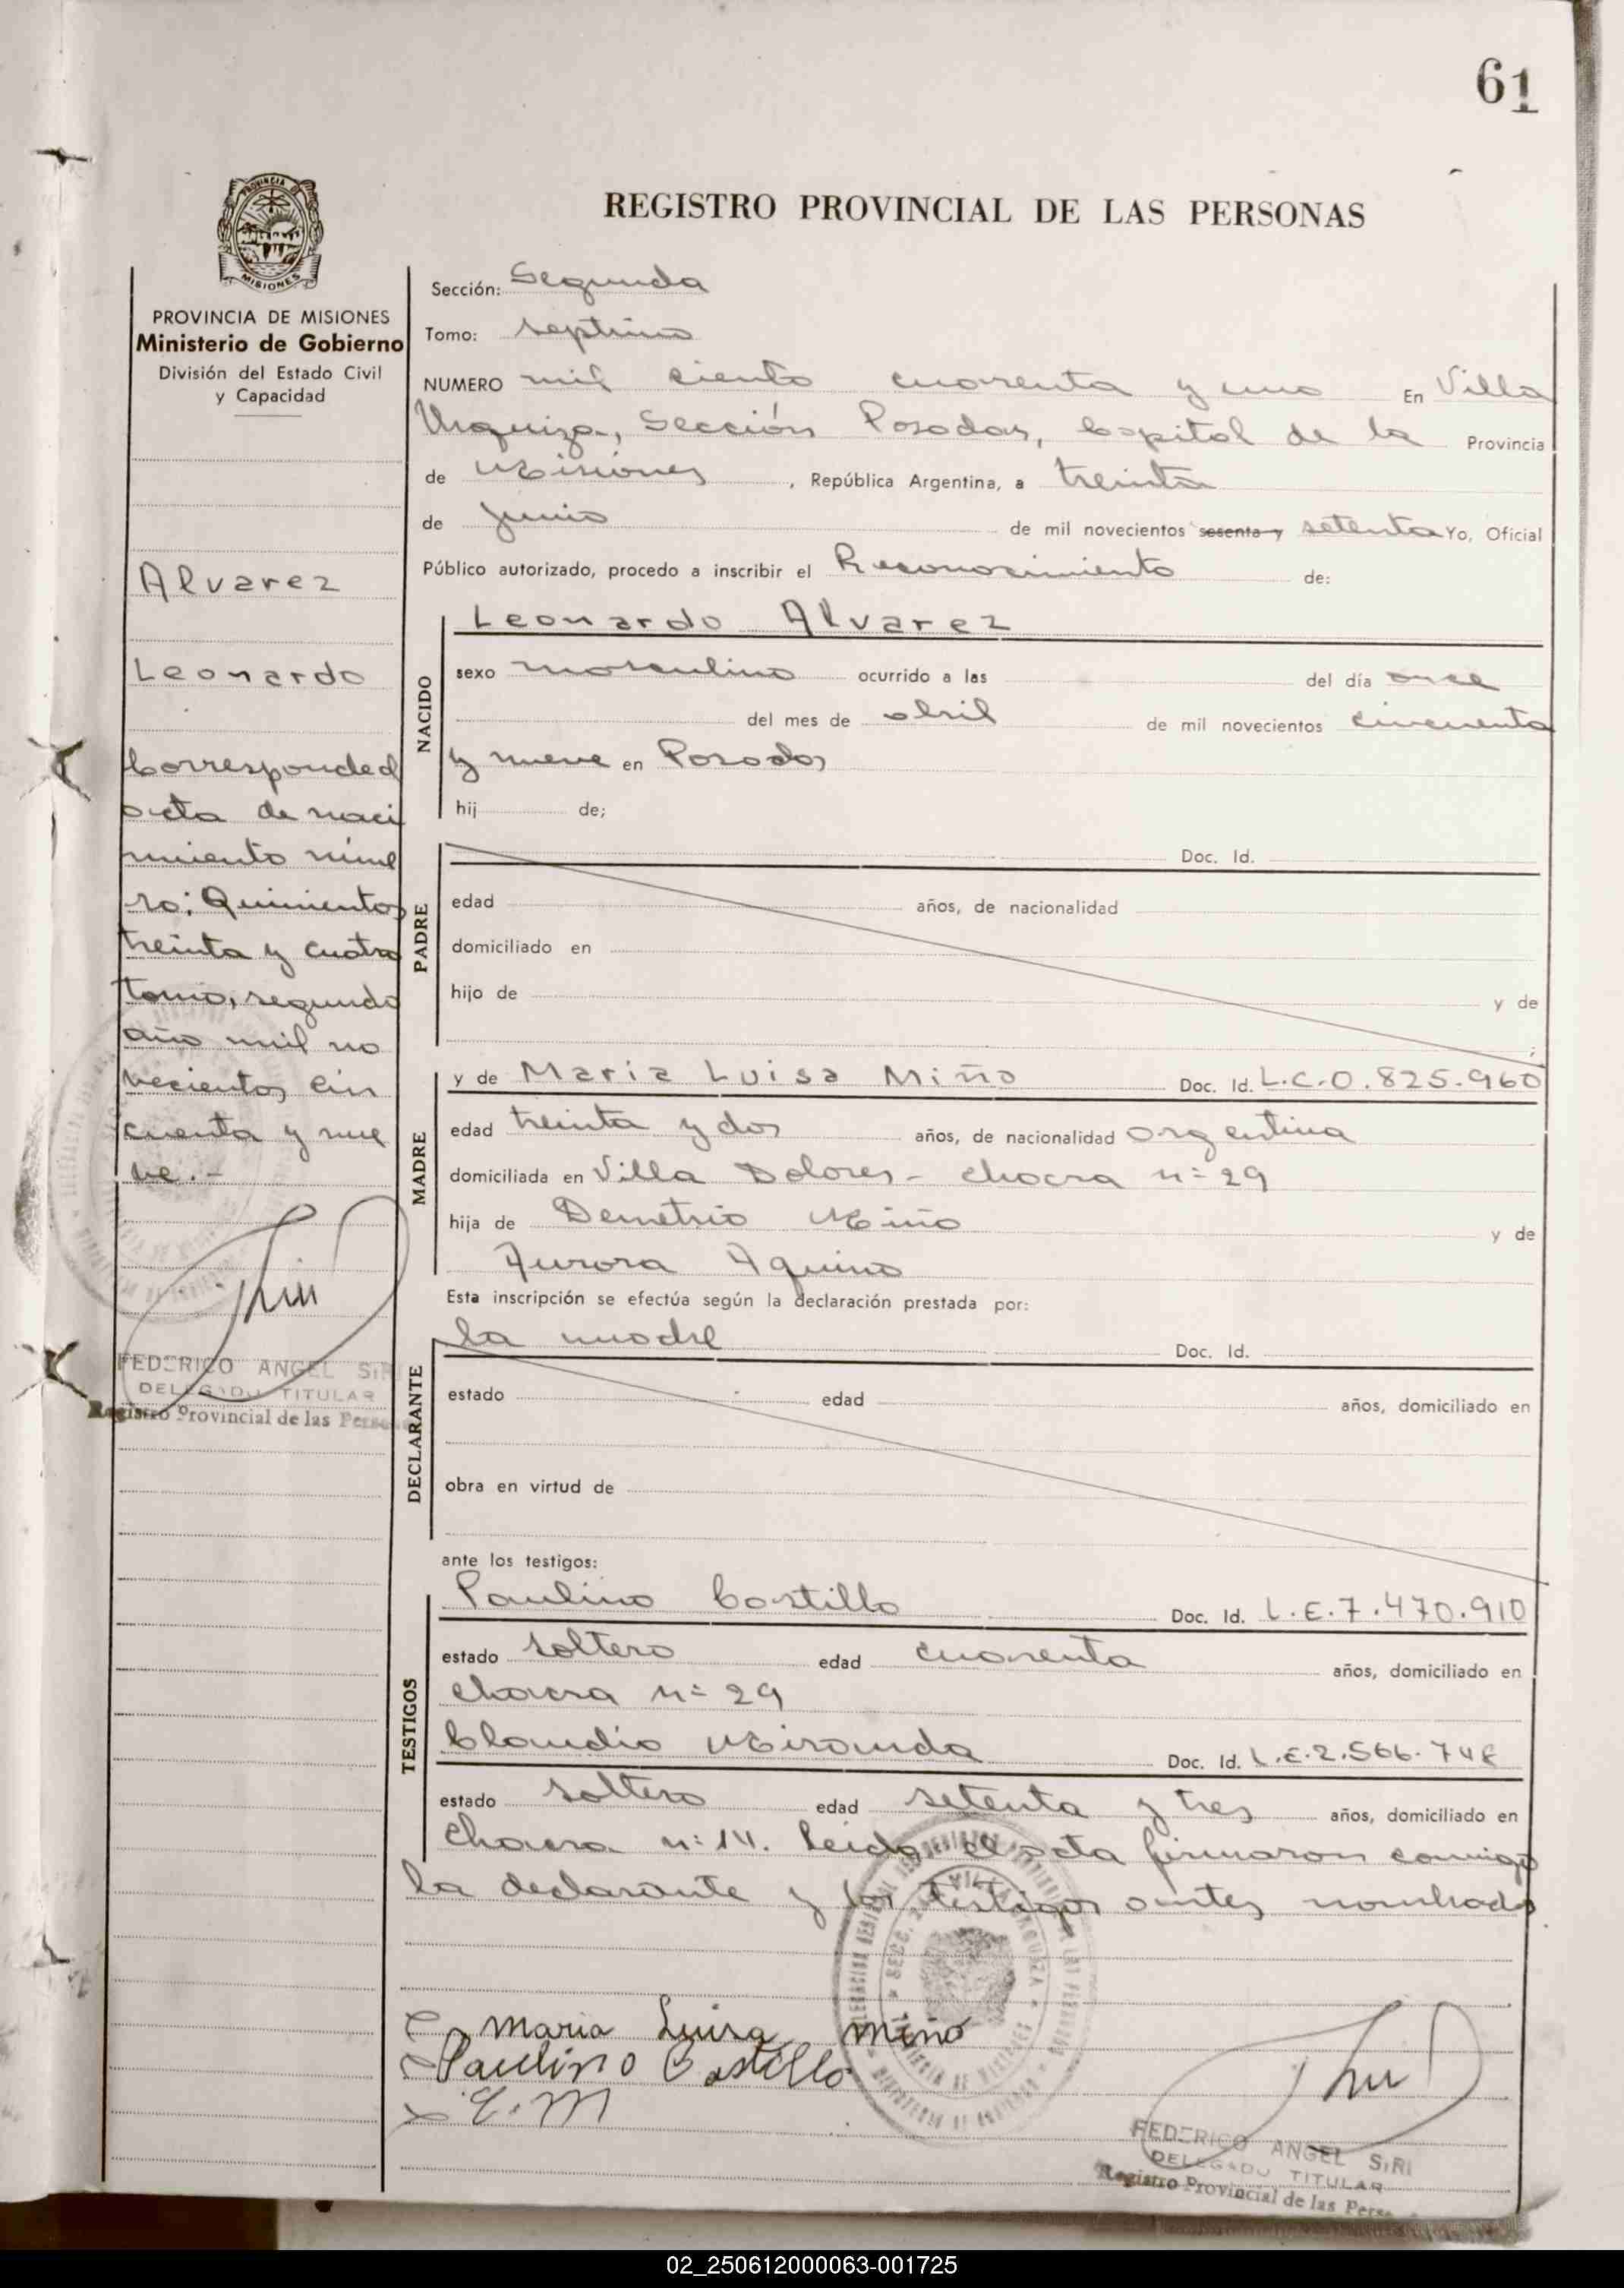 61
PROVINCIA DE MISIONES
REGISTRO PROVINCIAL DE LAS PERSONAS
PROVINCIA DE MISIONES
Ministerio de Gobierno
División del Estado Civil
y Capacidad
Alvarez
Leonardo
Corresponde al
acta de naci
miento núme
ro: Quinientos
treinta y cuatro
tomo, segundo
año mil no
vecientos cin
cuenta y nue
ve.-
FEDERICO ANGEL SIRI
DELEGADO TITULAR
Registro Provincial de las Perso
Sección: Segunda
Tomo: septimo
NUMERO mil ciento cuarenta y uno En Villa
Urquiza, Sección Posadas, Capital de la Provincia
de Misiones, República Argentina, a treinta
de junio de mil novecientos sesenta y setenta Yo, Oficial
Público autorizado, procedo a inscribir el Reconocimiento de:
NACIDO
Leonardo Alvarez
sexo masculino ocurrido a las del día once
del mes de abril de mil novecientos cincuenta
y nueve en Posadas
hij de;
PADRE
Doc. Id.
edad años, de nacionalidad
domiciliado en
hijo de y de
;
MADRE
y de Maria Luisa Miño Doc. Id. L.C.0.825.960
edad treinta y dos años, de nacionalidad argentina
domiciliada en Villa Dolores - chacra n= 29
hija de Demetrio Miño y de
Aurora Aquino
Esta inscripción se efectúa según la declaración prestada por:
DECLARANTE
la madre Doc. Id.
estado edad años, domiciliado en
obra en virtud de
ante los testigos:
TESTIGOS
Paulino Castillo Doc. Id. L.E.7.470.910
estado soltero edad cuarenta años, domiciliado en
chacra n= 29
Claudio Miranda Doc. Id. L.E.2.566.748
estado soltero edad setenta y tres años, domiciliado en
chacra n: 14. Leida el acta firmaron conmigo
la declarante y los testigos antes nombrados
Maria Luisa Miño
Paulino Castillo
C. M
FEDERICO ANGEL SIRI
DELEGADO TITULAR
Registro Provincial de las Perso
02_250612000063-001725